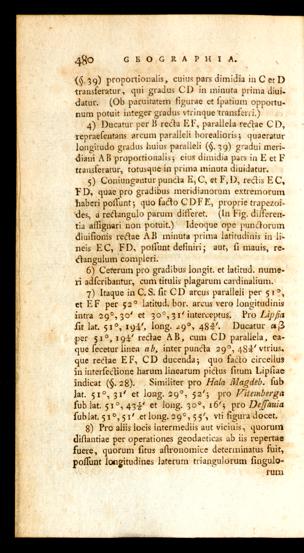 480 GEOGRAPHIA.
(§. 39) proportionalis, cuius pars dimidia in C et D
transferatur, qui gradus CD in minuta prima diui-
datur. (Ob paruitatem figurae et spatium opportu-
num potuit integer gradus vtrinque transferri.)
4) Ducatur per B recta EF, parallela rectae CD,
repraesentans arcum paralleli borealioris; quaeratur
longitudo gradus huius paralleli (§. 39) gradui meri-
diani AB proportionalis; eius dimidia pars in E et F
transferatur, totusque in prima minuta diuidatur.
5) Coniungantur puncta E, C, et F, D, rectis EC,
FD, quae pro gradibus meridianorum extremorum
haberi possunt; quo facto CDFE, proprie trapezoi-
des, a rectangulo parum differet. (In Fig. differen-
tia assignari non potuit.) Ideoque ope punctorum
diuisionis rectae AB minuta prima latitudinis in li-
neis EC, FD, possunt definiri; aut, si mauis, re-
ctangulum compleri.
6) Ceterum pro gradibus longit. et latitud. nume-
ri adscribantur, cum titulis plagarum cardinalium.
7) Itaque in C. S. sit CD arcus paralleli per 51°,
et EF per 52° latitud. bor. arcus vero longitudinis
intra 29°, 30′ et 30°, 31′ interceptus. Pro Lipsia
sit lat. 51°, 19¼′, long. 29°, 48¾′. Ducatur αβ
per 51°, 19¼′ rectae AB, cum CD parallela, ea-
que secetur linea ab, inter puncta 29°, 48¾′ vtrius.
que rectae EF, CD ducenda; quo facto circellus
in intersectione harum linearum pictus situm Lipsiae
indicat (§. 28). Similiter pro Hala Magdeb. sub
lat. 51°, 31′ et long. 29°, 52′; pro Vitemberga
sub lat. 51°, 43½′ et long. 30°, 16′; pro Dessauia
sub lat. 51°, 51′ et long. 29°, 55′, vti figura docet.
8) Pro aliis locis intermediis aut vicinis, quorum
distantiae per operationes geodaeticas ab iis repertae
fuere, quorum situs astronomice determinatus fuit,
possunt longitudines laterum triangulorum singulo-
rum